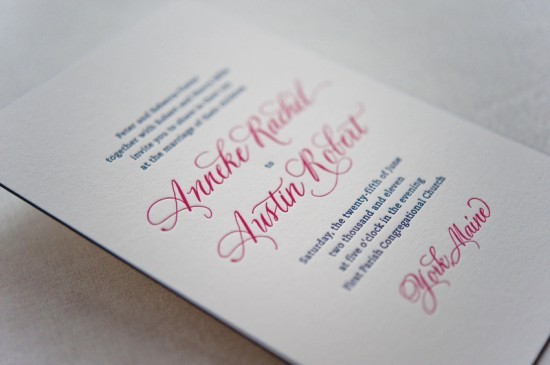 Peter and Rebecca
together with Robert and
invite you to share in their joy
at the marriage of their children
Anneke Rachel
to
Austin Robert
Saturday, the twenty-fifth of June
two thousand and eleven
at five o'clock in the evening
First Parish Congregational Church
York Maine